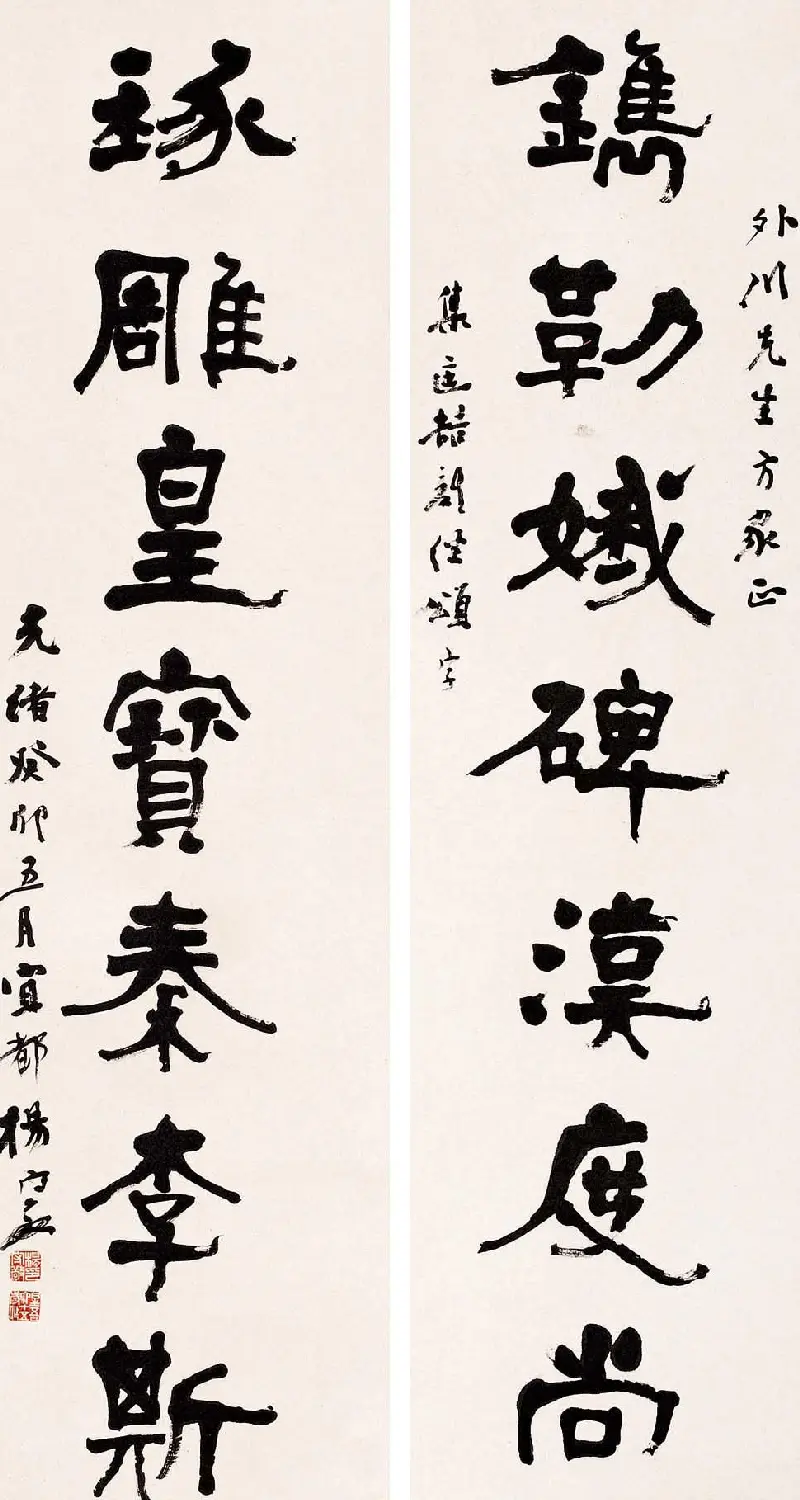 外川先生方家正
鐫勒娥碑漢度尚
集匡喆刻經頌字
琢雕皇寶秦李斯
光緒癸卯五月宜都楊守敬